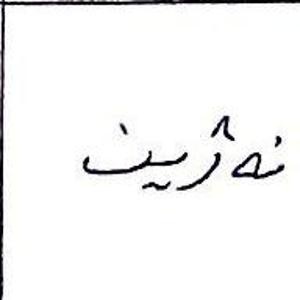 نەژین